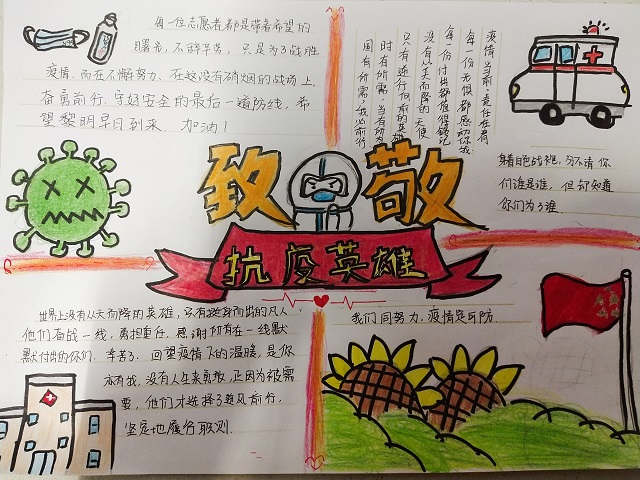 每一位志愿者都是带着希望的
曙光,不辞辛劳,只是为了战胜
疫情.而在不懈努力.在这没有硝烟的战场上,
奋勇前行.守好安全的最后一道防线,希
望黎明早日到来.加油!
疫情当前,责任在肩
每一份无惧都感动你我
每一份付出都值得铭记
没有从天而降的天使
只有逆行向前的英雄
时有所需,当有所为
国有所需,我必前行
身着白色战袍,分不清你
们谁是谁,但却知道
你们为了谁.
致敬
抗疫英雄
世界上没有从天而降的英雄,只有挺身而出的凡人
他们奋战一线,勇担重任,感谢所有在一线默
默付出的你们.辛苦了.回望疫情下的温暖,是你
亦有我,没有人生来勇敢,正因为被需
要,他们才选择了逆风前行,
坚定地履行职测.
我们同努力.疫情定可防